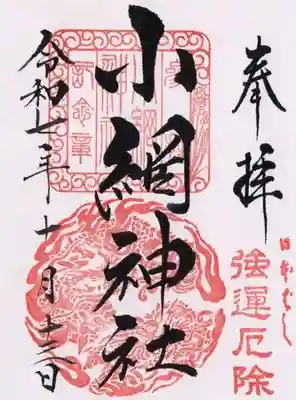 奉拝
日本ばし
強運厄除
小網神社
令和七年十月十六日